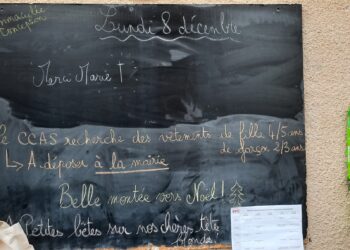 Immaculée
Conception
Lundi 8 décembre
Merci Marie
Le CCAS recherche des vêtements de fille 4/5 ans
de garçon 2/3 ans
↳ A déposer à la mairie
Belle montée vers Noël !
Petites bêtes sur nos chères têtes
blondes